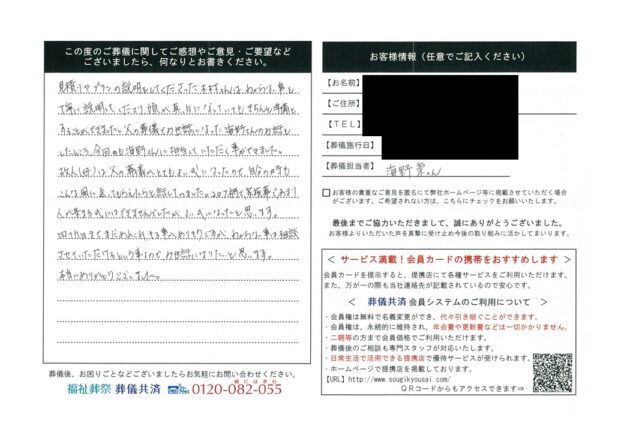 この度のご葬儀に関してご感想やご意見・ご要望など
ございましたら、何なりとお書きください。
見積りやプランの説明をしてくださった木村さんは、わからない事も
丁寧に説明してくださり、頭が真白になっていてもきちんと準備を
することができました。父の葬儀でお世話になった海野さんのお話を
したところ、今回も海野さんに担当していただく事ができました。
故人(母)は父の葬儀がとてもよい式になったので自分の時も
こんな風に送ってもらえたらと話していました。コロナ禍で家族葬であまり
人が来る式にはできませんでしたが、よい式になったと思います。
四十九日までまだあれこれする事がありそうですが、わからない事は相談
させていただけるという事なのでお世話になりたいと思います。
本当にありがとうございました。
葬儀後、お困りごとなどございましたらお気軽にお問い合わせください。
福祉葬祭 葬儀共済 0120-082-055
お客様情報（任意でご記入ください）
【お名前】
【ご住所】
【ＴＥＬ】
【葬儀施行日】
【葬儀担当者】 海野 さん
□ お客様の貴重なご意見を匿名にて弊社ホームページ等に掲載させていただく場合
がございます。ご希望されない方は、こちらにチェックをお願いいたします。
最後までご協力いただきまして、誠にありがとうございました。
お客様よりいただいた声を真摯に受け止め今後の取り組みに活かしてまいります。
＜ サービス満載！会員カードの携帯をおすすめします ＞
会員カードを提示すると、提携店にて各種サービスをご利用いただけます、
また、万が一の際も当社連絡先が記載されているので安心です。
＜ 葬儀共済 会員システムのご利用について ＞
・会員権は無料で名義変更ができ、代々引き継ぐことができます。
・会員権は、永続的に維持され、年会費や更新費などは一切かかりません。
・二親等の方まで会員価格でご利用いただけます。
・葬儀後のご相談も専門スタッフが対応いたします。
・日常生活で活用できる提携店で優待サービスが受けられます。
・ホームページで提携店を掲載しております。
【URL】http://www.sougikyousai.com/
ＱＲコードからもアクセスできます⇒